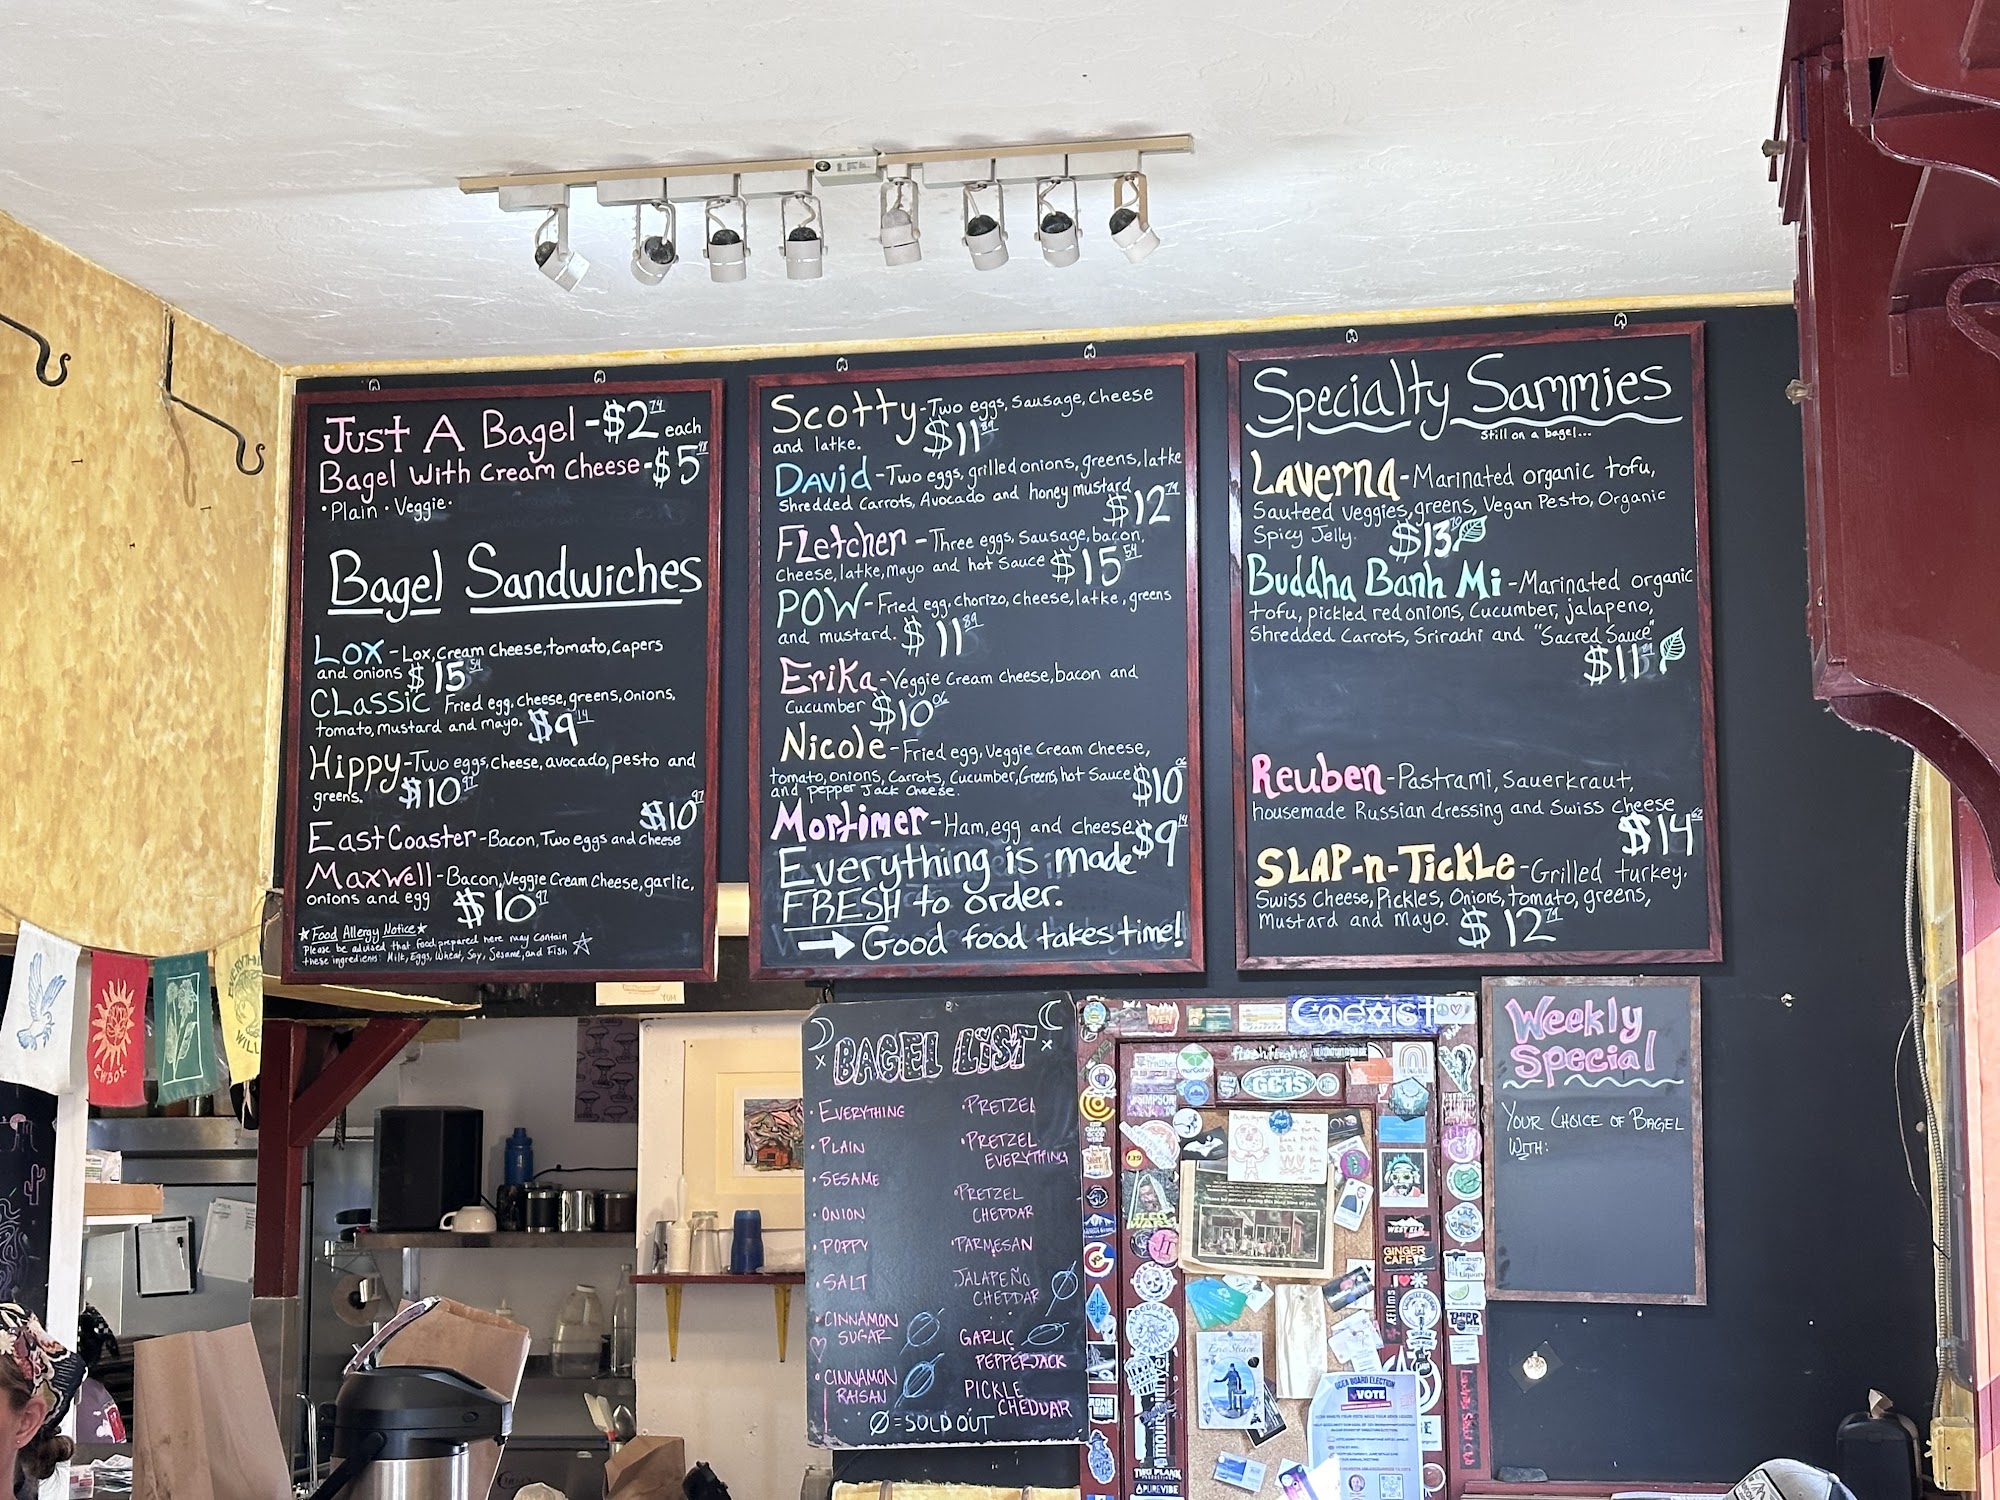 Just A Bagel - $2 74 each
Bagel With Cream Cheese - $5 48
• Plain • Veggie •
Bagel Sandwiches
Lox - Lox, Cream Cheese, tomato, capers
and onions $15 54
Classic Fried egg, cheese, greens, onions,
tomato, mustard and mayo. $9 14
Hippy - Two eggs, cheese, avocado, pesto and
greens. $10 97
$10 97
East Coaster - Bacon, Two eggs and cheese
Maxwell - Bacon, Veggie Cream Cheese, garlic,
onions and egg $10 97
★ Food Allergy Notice ★
Please be advised that food prepared here may contain
these ingredients: Milk, Eggs, Wheat, Soy, Sesame, and Fish
Scotty - Two eggs, Sausage, Cheese
and latke. $11 89
David - Two eggs, grilled onions, greens, latke
Shredded Carrots, Avocado and honey mustard
$12 71
Fletcher - Three eggs, Sausage, bacon,
Cheese, latke, mayo and hot sauce $15 54
POW - Fried egg, chorizo, cheese, latke, greens
and mustard. $11 89
Erika - Veggie Cream cheese, bacon and
Cucumber $10 06
Nicole - Fried egg, Veggie Cream Cheese,
tomato, onions, Carrots, Cucumber, Greens, hot Sauce $10 06
and pepper Jack Cheese.
Mortimer - Ham, egg and cheese $9 14
Everything is made
FRESH to order.
→ Good food takes time!
Specialty Sammies
Still on a bagel...
Laverna - Marinated organic tofu,
Sauteed Veggies, greens, Vegan Pesto, Organic
Spicy Jelly. $13 70
Buddha Banh Mi - Marinated organic
tofu, pickled red onions, Cucumber, jalapeno,
Shredded Carrots, Srirachi and "Sacred Sauce"
$11 89
Reuben - Pastrami, Sauerkraut,
housemade Russian dressing and Swiss cheese
$14 62
SLAP-n-Tickle - Grilled turkey.
Swiss Cheese, Pickles, Onions, tomato, greens,
Mustard and Mayo. $12 71
YUM
BAGEL LiST
• EVERYTHING
• PLAIN
• SESAME
• ONION
• POPPY
• SALT
• CINNAMON
SUGAR
• CINNAMON
RAISAN
• PRETZEL
• PRETZEL
EVERYTHING
• PRETZEL
CHEDDAR
• PARMESAN
JALAPEÑO
CHEDDAR
GARLIC
PEPPERJACK
PICKLE
CHEDDAR
Ø = SOLD OUT
Weekly
Special
YOUR CHOICE OF BAGEL
WITH:
COEXIST
GCIS
SIMPSON
STAR WARS
WEST ELK
GINGER
CAFE
Eric Stowe
BOARD ELECTION
VOTE
mountain
TWO PLANK
PUREVIBE
WILL